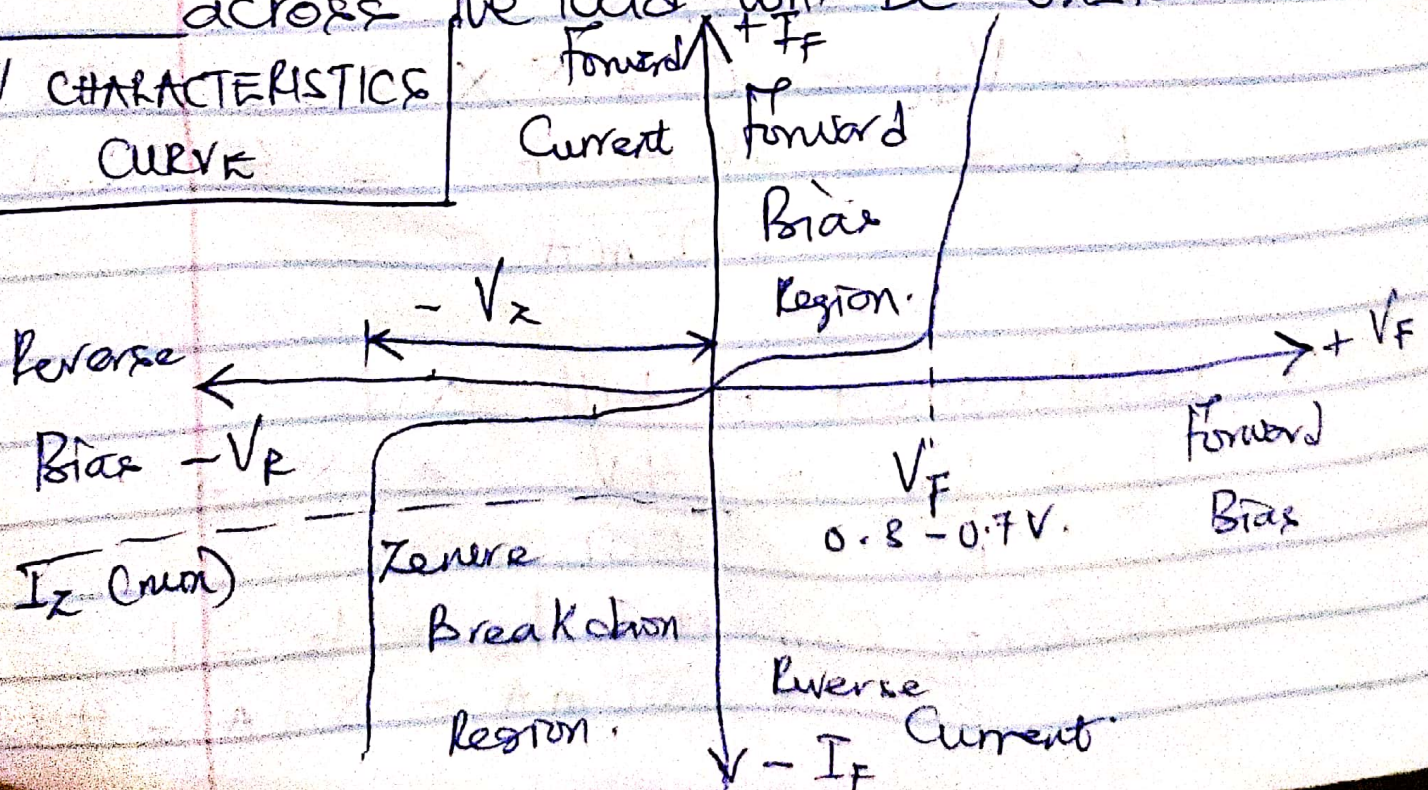 across
CHARACTERISTICS
CURVE
Forward
Current
+ IF
Forward
Bias
Region.
- Vz
Reverse
Bias - VR
+ VF
Forward
Bias
VF
0.3 - 0.7 V.
Iz (min)
Zenere
Breakdown
Region.
Reverse
Current.
- IF